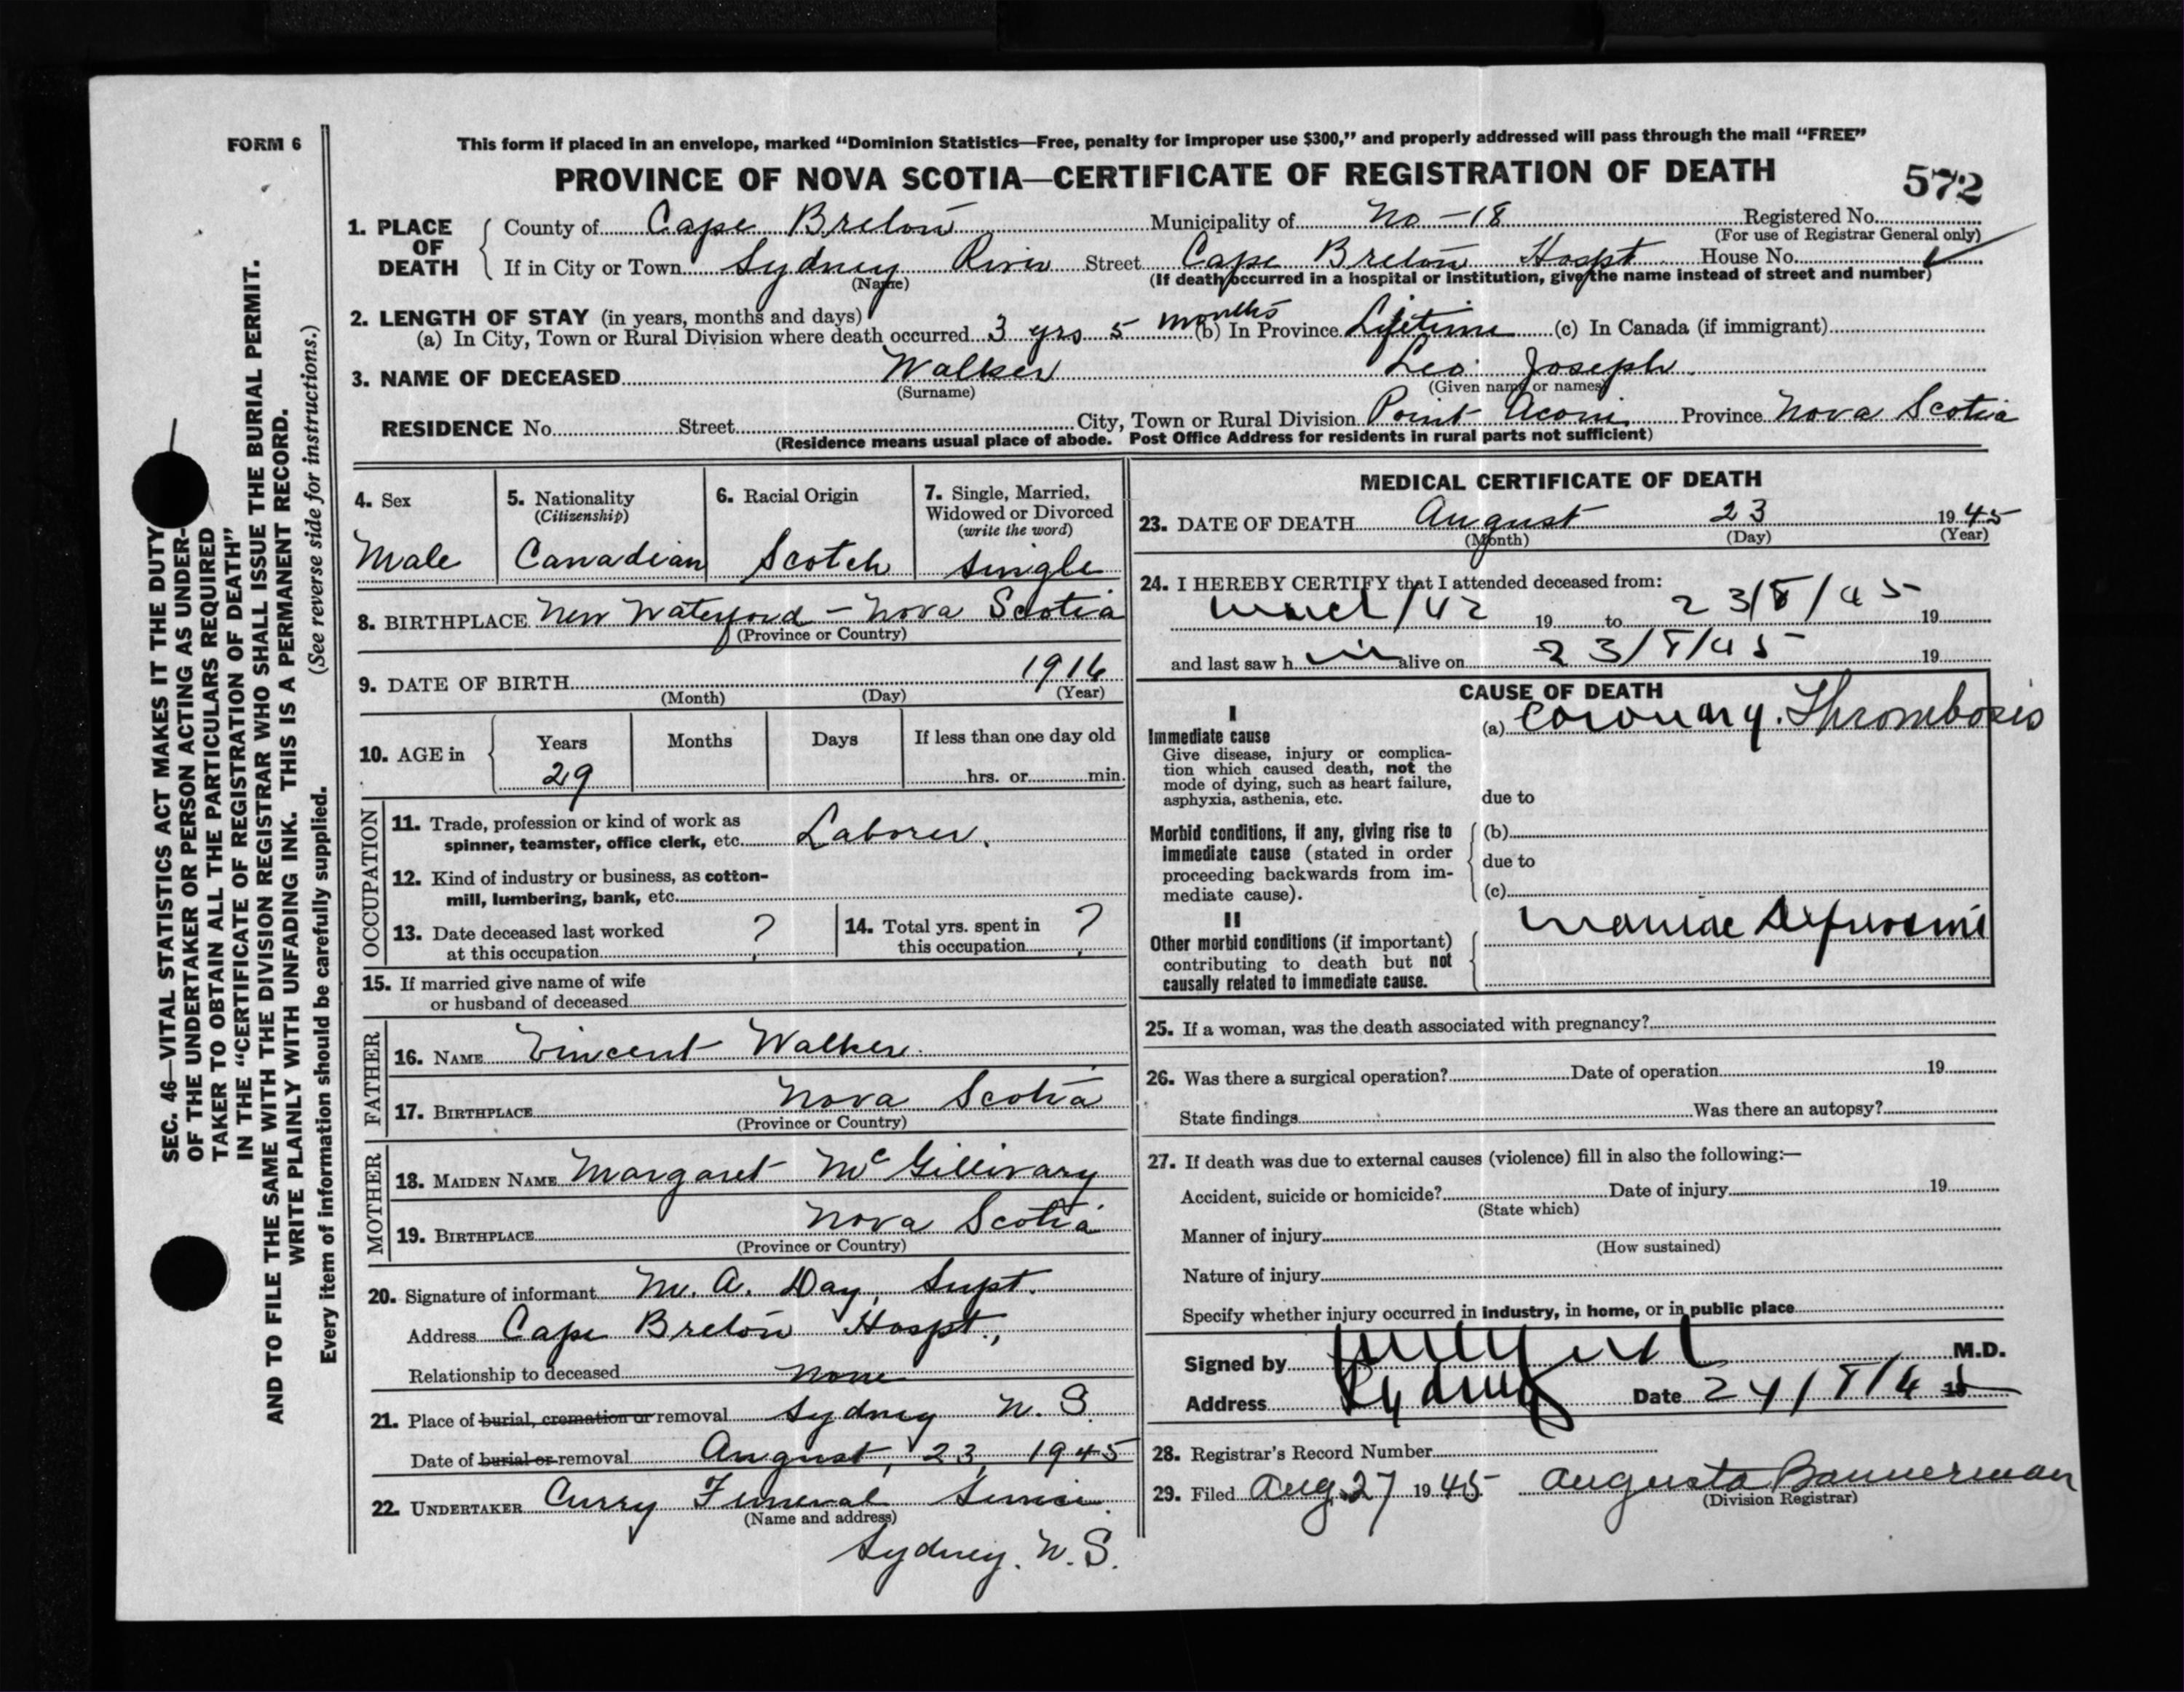 FORM 6
This form if placed in an envelope, marked “Dominion Statistics—Free, penalty for improper use $300,” and properly addressed will pass through the mail “FREE”
PROVINCE OF NOVA SCOTIA—CERTIFICATE OF REGISTRATION OF DEATH
572
1. PLACE OF DEATH
County of Cape Breton Municipality of No - 18 Registered No.
(For use of Registrar General only)
If in City or Town Sydney River Street Cape Breton Hospt House No.
(Name) (If death occurred in a hospital or institution, give the name instead of street and number)
2. LENGTH OF STAY (in years, months and days)
(a) In City, Town or Rural Division where death occurred 3 yrs 5 months (b) In Province Lifetime (c) In Canada (if immigrant)
3. NAME OF DECEASED Walker Leo Joseph
(Surname) (Given name or names)
RESIDENCE No. Street City, Town or Rural Division Point Aconi Province Nova Scotia
(Residence means usual place of abode. Post Office Address for residents in rural parts not sufficient)
4. Sex
Male
5. Nationality
(Citizenship)
Canadian
6. Racial Origin
Scotch
7. Single, Married,
Widowed or Divorced
(write the word)
Single
8. BIRTHPLACE New Waterford - Nova Scotia
(Province or Country)
9. DATE OF BIRTH 1916
(Month) (Day) (Year)
10. AGE in
Years Months Days If less than one day old
29 hrs. or min.
OCCUPATION
11. Trade, profession or kind of work as
spinner, teamster, office clerk, etc. Laborer.
12. Kind of industry or business, as cotton-
mill, lumbering, bank, etc.
13. Date deceased last worked
at this occupation ?
14. Total yrs. spent in
this occupation ?
15. If married give name of wife
or husband of deceased
FATHER
16. NAME Vincent Walker
17. BIRTHPLACE Nova Scotia
(Province or Country)
MOTHER
18. MAIDEN NAME Margaret McGillivary
19. BIRTHPLACE Nova Scotia
(Province or Country)
20. Signature of informant M. A. Day, Supt.
Address Cape Breton Hospt.,
Relationship to deceased none
21. Place of burial, cremation or removal Sydney N. S.
Date of burial or removal August, 23, 1945
22. UNDERTAKER Curry Funeral Service.
(Name and address)
Sydney. N. S.
MEDICAL CERTIFICATE OF DEATH
23. DATE OF DEATH August 23 1945
(Month) (Day) (Year)
24. I HEREBY CERTIFY that I attended deceased from:
March/42 19 to 23/8/45 19
and last saw h im alive on 23/8/45 19
CAUSE OF DEATH
I
Immediate cause
Give disease, injury or complica-
tion which caused death, not the
mode of dying, such as heart failure,
asphyxia, asthenia, etc.
(a) Coronary. Thrombosis
due to
Morbid conditions, if any, giving rise to
immediate cause (stated in order
proceeding backwards from im-
mediate cause).
(b)
due to
(c)
II
Other morbid conditions (if important)
contributing to death but not
causally related to immediate cause.
Maniac Depressive
25. If a woman, was the death associated with pregnancy?
26. Was there a surgical operation? Date of operation 19
State findings Was there an autopsy?
27. If death was due to external causes (violence) fill in also the following:—
Accident, suicide or homicide? Date of injury 19
(State which)
Manner of injury
(How sustained)
Nature of injury
Specify whether injury occurred in industry, in home, or in public place
Signed by M.D.
Address Sydney Date 24/8/45
28. Registrar's Record Number
29. Filed Aug. 27 1945 Augusta Bannerman
(Division Registrar)
SEC. 46—VITAL STATISTICS ACT MAKES IT THE DUTY
OF THE UNDERTAKER OR PERSON ACTING AS UNDER-
TAKER TO OBTAIN ALL THE PARTICULARS REQUIRED
IN THE “CERTIFICATE OF REGISTRATION OF DEATH”
AND TO FILE THE SAME WITH THE DIVISION REGISTRAR WHO SHALL ISSUE THE BURIAL PERMIT.
WRITE PLAINLY WITH UNFADING INK. THIS IS A PERMANENT RECORD.
Every item of information should be carefully supplied. (See reverse side for instructions.)